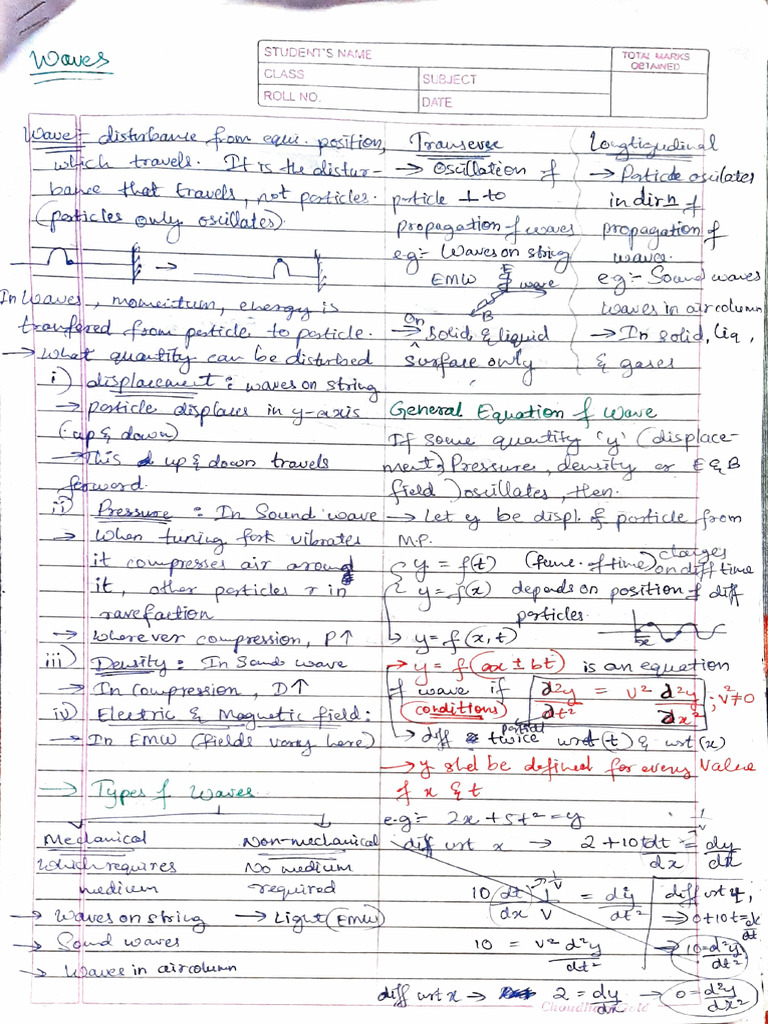 Waves
STUDENT'S NAME
TOTAL MARKS OBTAINED
CLASS
SUBJECT
ROLL NO.
DATE
Wave:- disturbance from equi. position,
which travels. It is the distur-
bance that travels, not particles.
(particles only oscillates).
In Waves, momentum, energy is
transfered from particle to particle.
→ What quantity can be disturbed
i) displacement : waves on string
→ particle displaces in y-axis
(up & down)
→ This up & down travels
forward.
ii) Pressure : In Sound wave
→ When tuning fork vibrates
it compresses air around
it, other particles r in
rarefaction
→ Wherever compression, P↑
iii) Density : In Sound wave
→ In compression, D↑
iv) Electric & Magnetic field :
→ In EMW (fields vary here)
→ Types of Waves
Mechanical
which requires
medium
→ Waves on string
→ Sound waves
→ Waves in air column
Non-mechanical
No medium
required
→ Light (EMW)
Transverse
→ Oscillation of
particle ⊥ to
propagation of waves
e.g:- Waves on string
EMW E wave
B
→ On Solid & liquid
surface only
Longtigudinal
→ Particle oscilates
in dirn of
propagation of
wave.
e.g:- Sound waves
waves in air column
→ In solid, liq,
& gases
General Equation of Wave
If some quantity 'y' (displace-
ment, Pressure, density or E & B
field) oscillates, then.
→ Let y be displ. of particle from
M.P.
y = f(t) (func. of time) changes on diff time
y = f(x) depends on position of diff
particles.
x
↳ y = f(x, t)
→ y = f(ax ± bt) is an equation
of wave if
(conditions)
d²y/dt² = v² d²y/dx² ; v² ≠ 0
→ diff partial twice wrt (t) & wrt (x)
→ y shd be defined for every value
of x & t
e.g:- 2x + 5t² = y
diff wrt x → 2 + 10t dt/dx = dy/dx
1/v
10 dt/dx 1/v = dy/dt²
1/v
10 = v² d²y/dt²
diff wrt x → 2 = dy/dx → 0 = d²y/dx²
→ 0 + 10t =
→ 10 = d²y/dt²